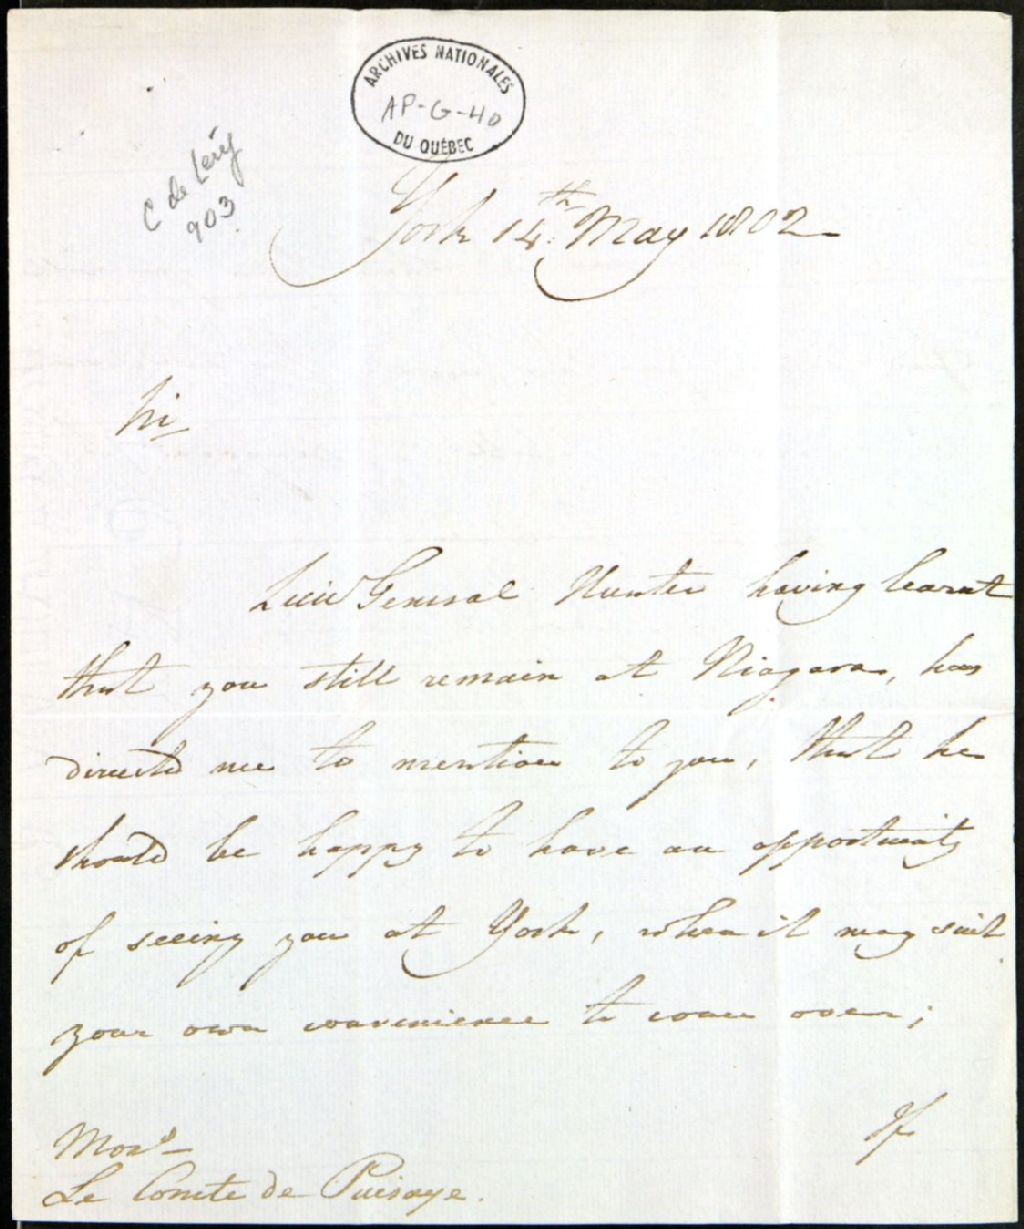 ARCHIVES NATIONALES
AP-G-40
DU QUÉBEC
C de Léry
903
York 14th. May 1802
Sir
Lieut General Hunter having learnt
that you still remain at Niagara, has
directed me to mention to you, that he
should be happy to have an opportunity
of seeing you at York, when it may suit
your own convenience to come over;
If
Monsr
Le Comte de Puisaye.